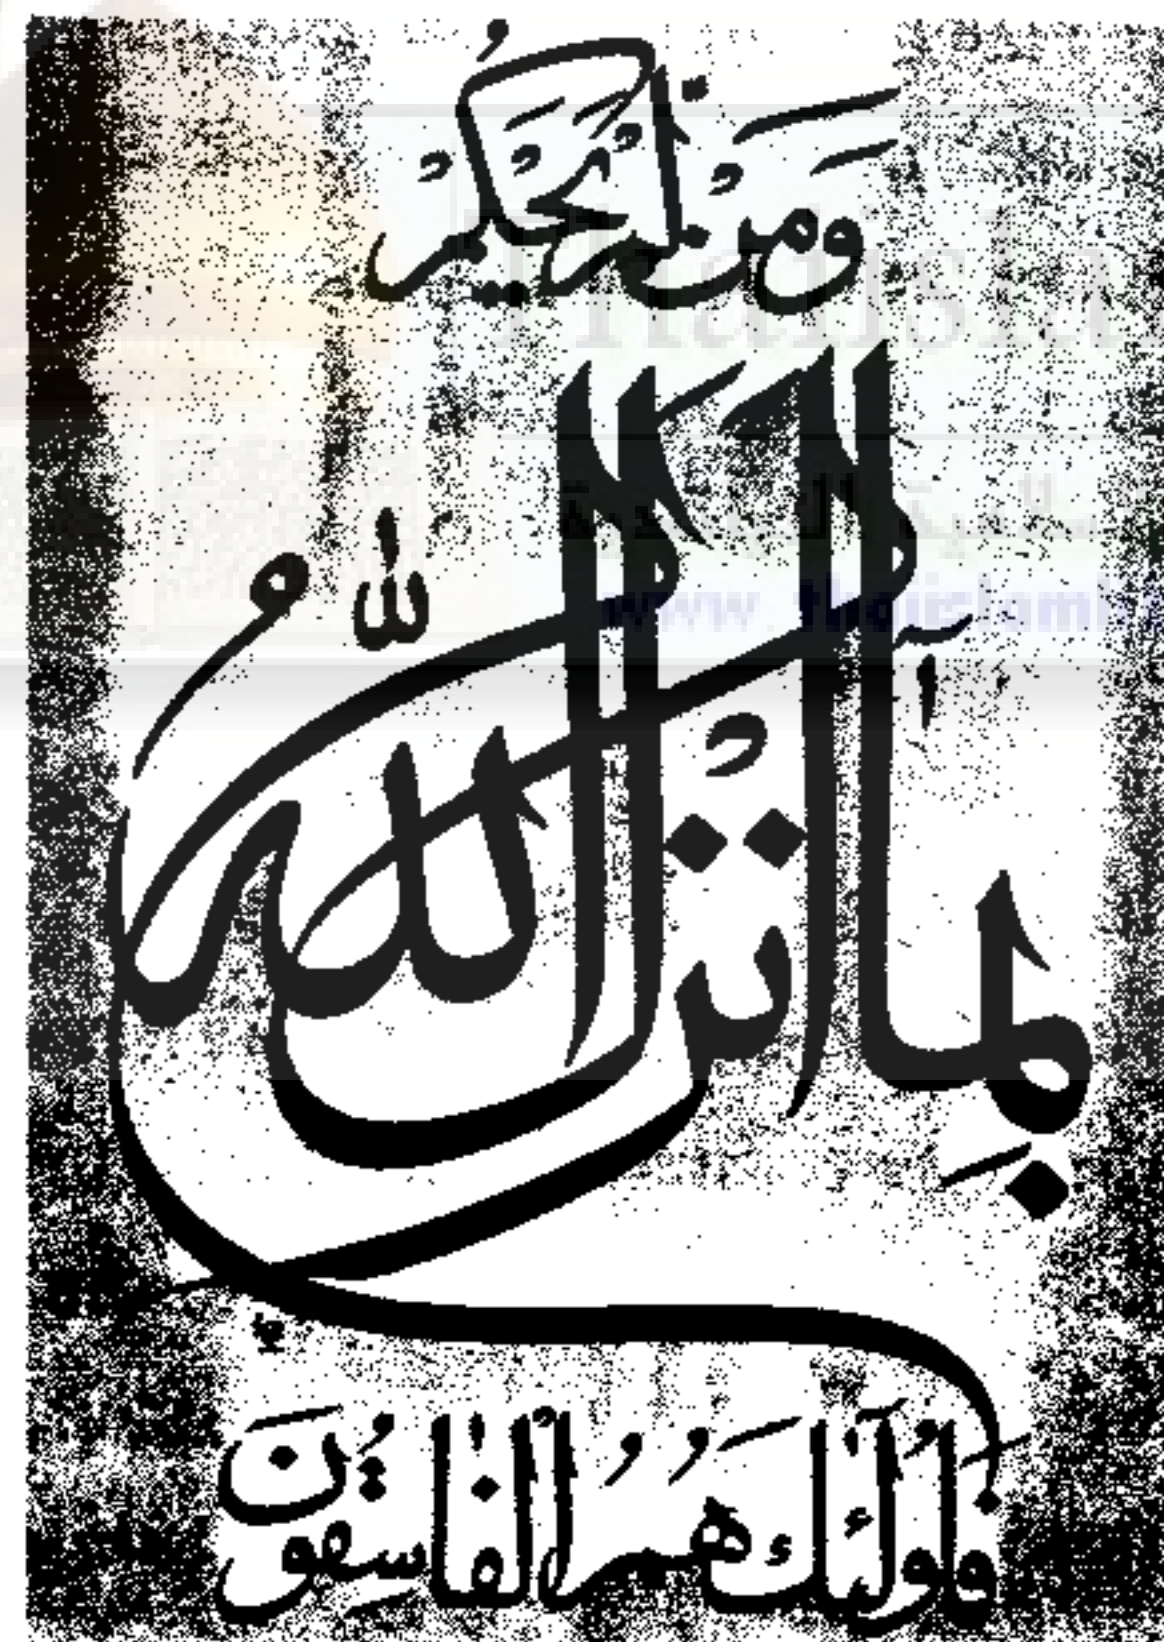 وَمَنْ لَمْ يَحْكُمْ
بِمَا أَنْزَلَ اللّٰهُ
فَأُولَٰئِكَ هُمُ الْفَاسِقُونَ